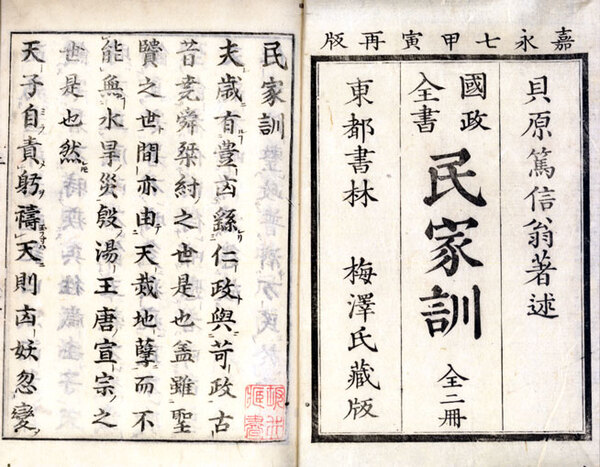 嘉永七甲寅再版
貝原篤信翁著述
國政全書
民家訓 全二冊
東都書林 梅澤氏藏版
民家訓
夫歳有豊凶繇仁政與苛政古
昔堯舜桀紂之世是也盖雖聖
贒之世間亦由天烖地孽而不
能無水旱災殷湯王唐宣宗之
世是也然
天子自責躬禱天則凶妖忽變